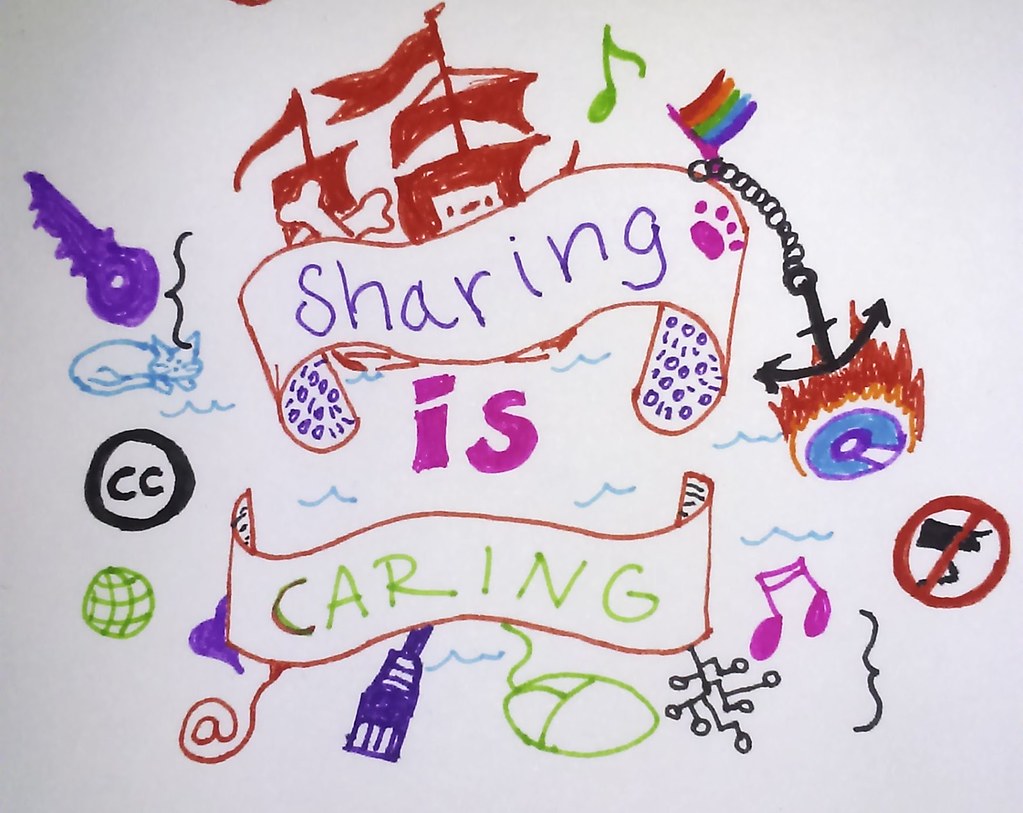 Sharing
is
CARING
cc
@